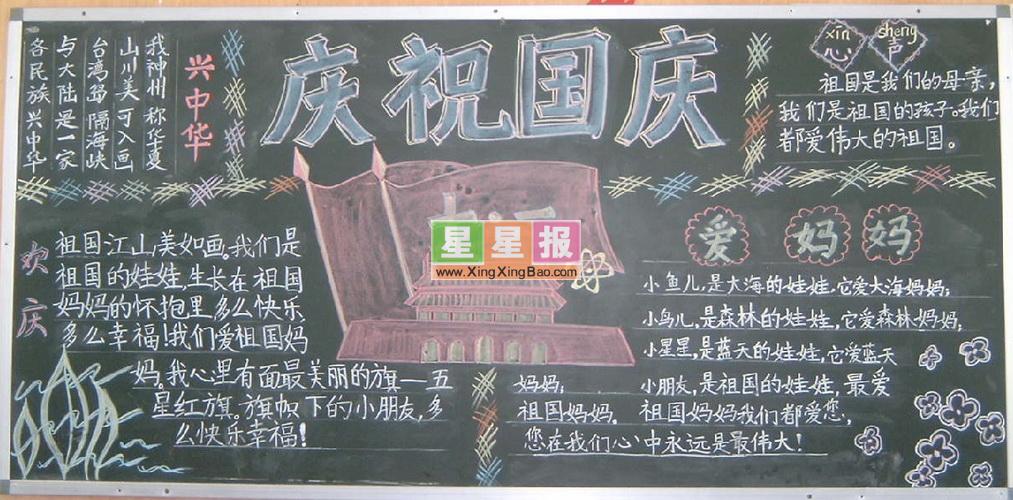 庆祝国庆
兴中华
我神州称华夏
山川美可入画
台湾岛隔海峡
与大陆是一家
各民族兴中华
xin sheng
心声
祖国是我们的母亲,
我们是祖国的孩子。我们
都爱伟大的祖国。
星星报
www.XingXingBao.com
欢庆
祖国江山,美如画,我们是
祖国的娃娃,生长在祖国
妈妈的怀抱里多么快乐
多么幸福!我们爱祖国妈
妈。我心里有面最美丽的旗—五
星红旗。旗帜下的小朋友,多
么快乐幸福!
爱妈妈
小鱼儿,是大海的娃娃,它爱大海妈妈;
小鸟儿,是森林的娃娃,它爱森林妈妈;
小星星,是蓝天的娃娃,它爱蓝天
妈妈; 小朋友,是祖国的娃娃,最爱
祖国妈妈。 祖国妈妈我们都爱您,
您在我们心中永远是最伟大!